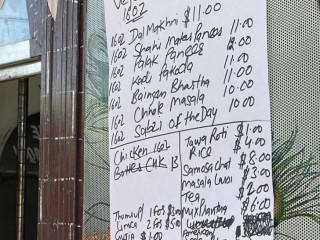 1602
1602 Dal Makhni $11.00
1602 Shahi Matar Paneer 11.00
1602 Palak Paneer
1602 Kadi Pakoda 11.00
1602 Baingan Bhartha 10.00
1602 Chhole Masala 10.00
1602 Sabzi of the Day 10.00
Chicken 1602
Butter Chk 13
Tawa Roti $1.00
RICE $4.00
Samosa Chat $8.00
masala $3.00
TEA $2.00
$6.00
Thumsup 1 For $3.00
Limca 2 For $5.00
$1.00